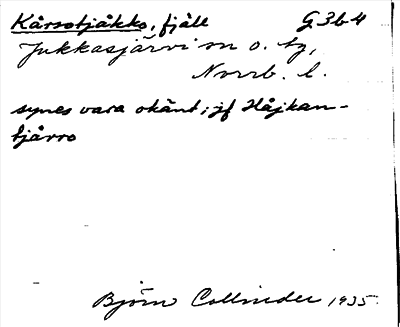 Kårsotjåkko, fjäll G 3b4
Jukkasjärvi sn o. tg,
Norrb. l.
synes vara okänt; jf Håjkan-
tjårro
Björn Collinder 1935